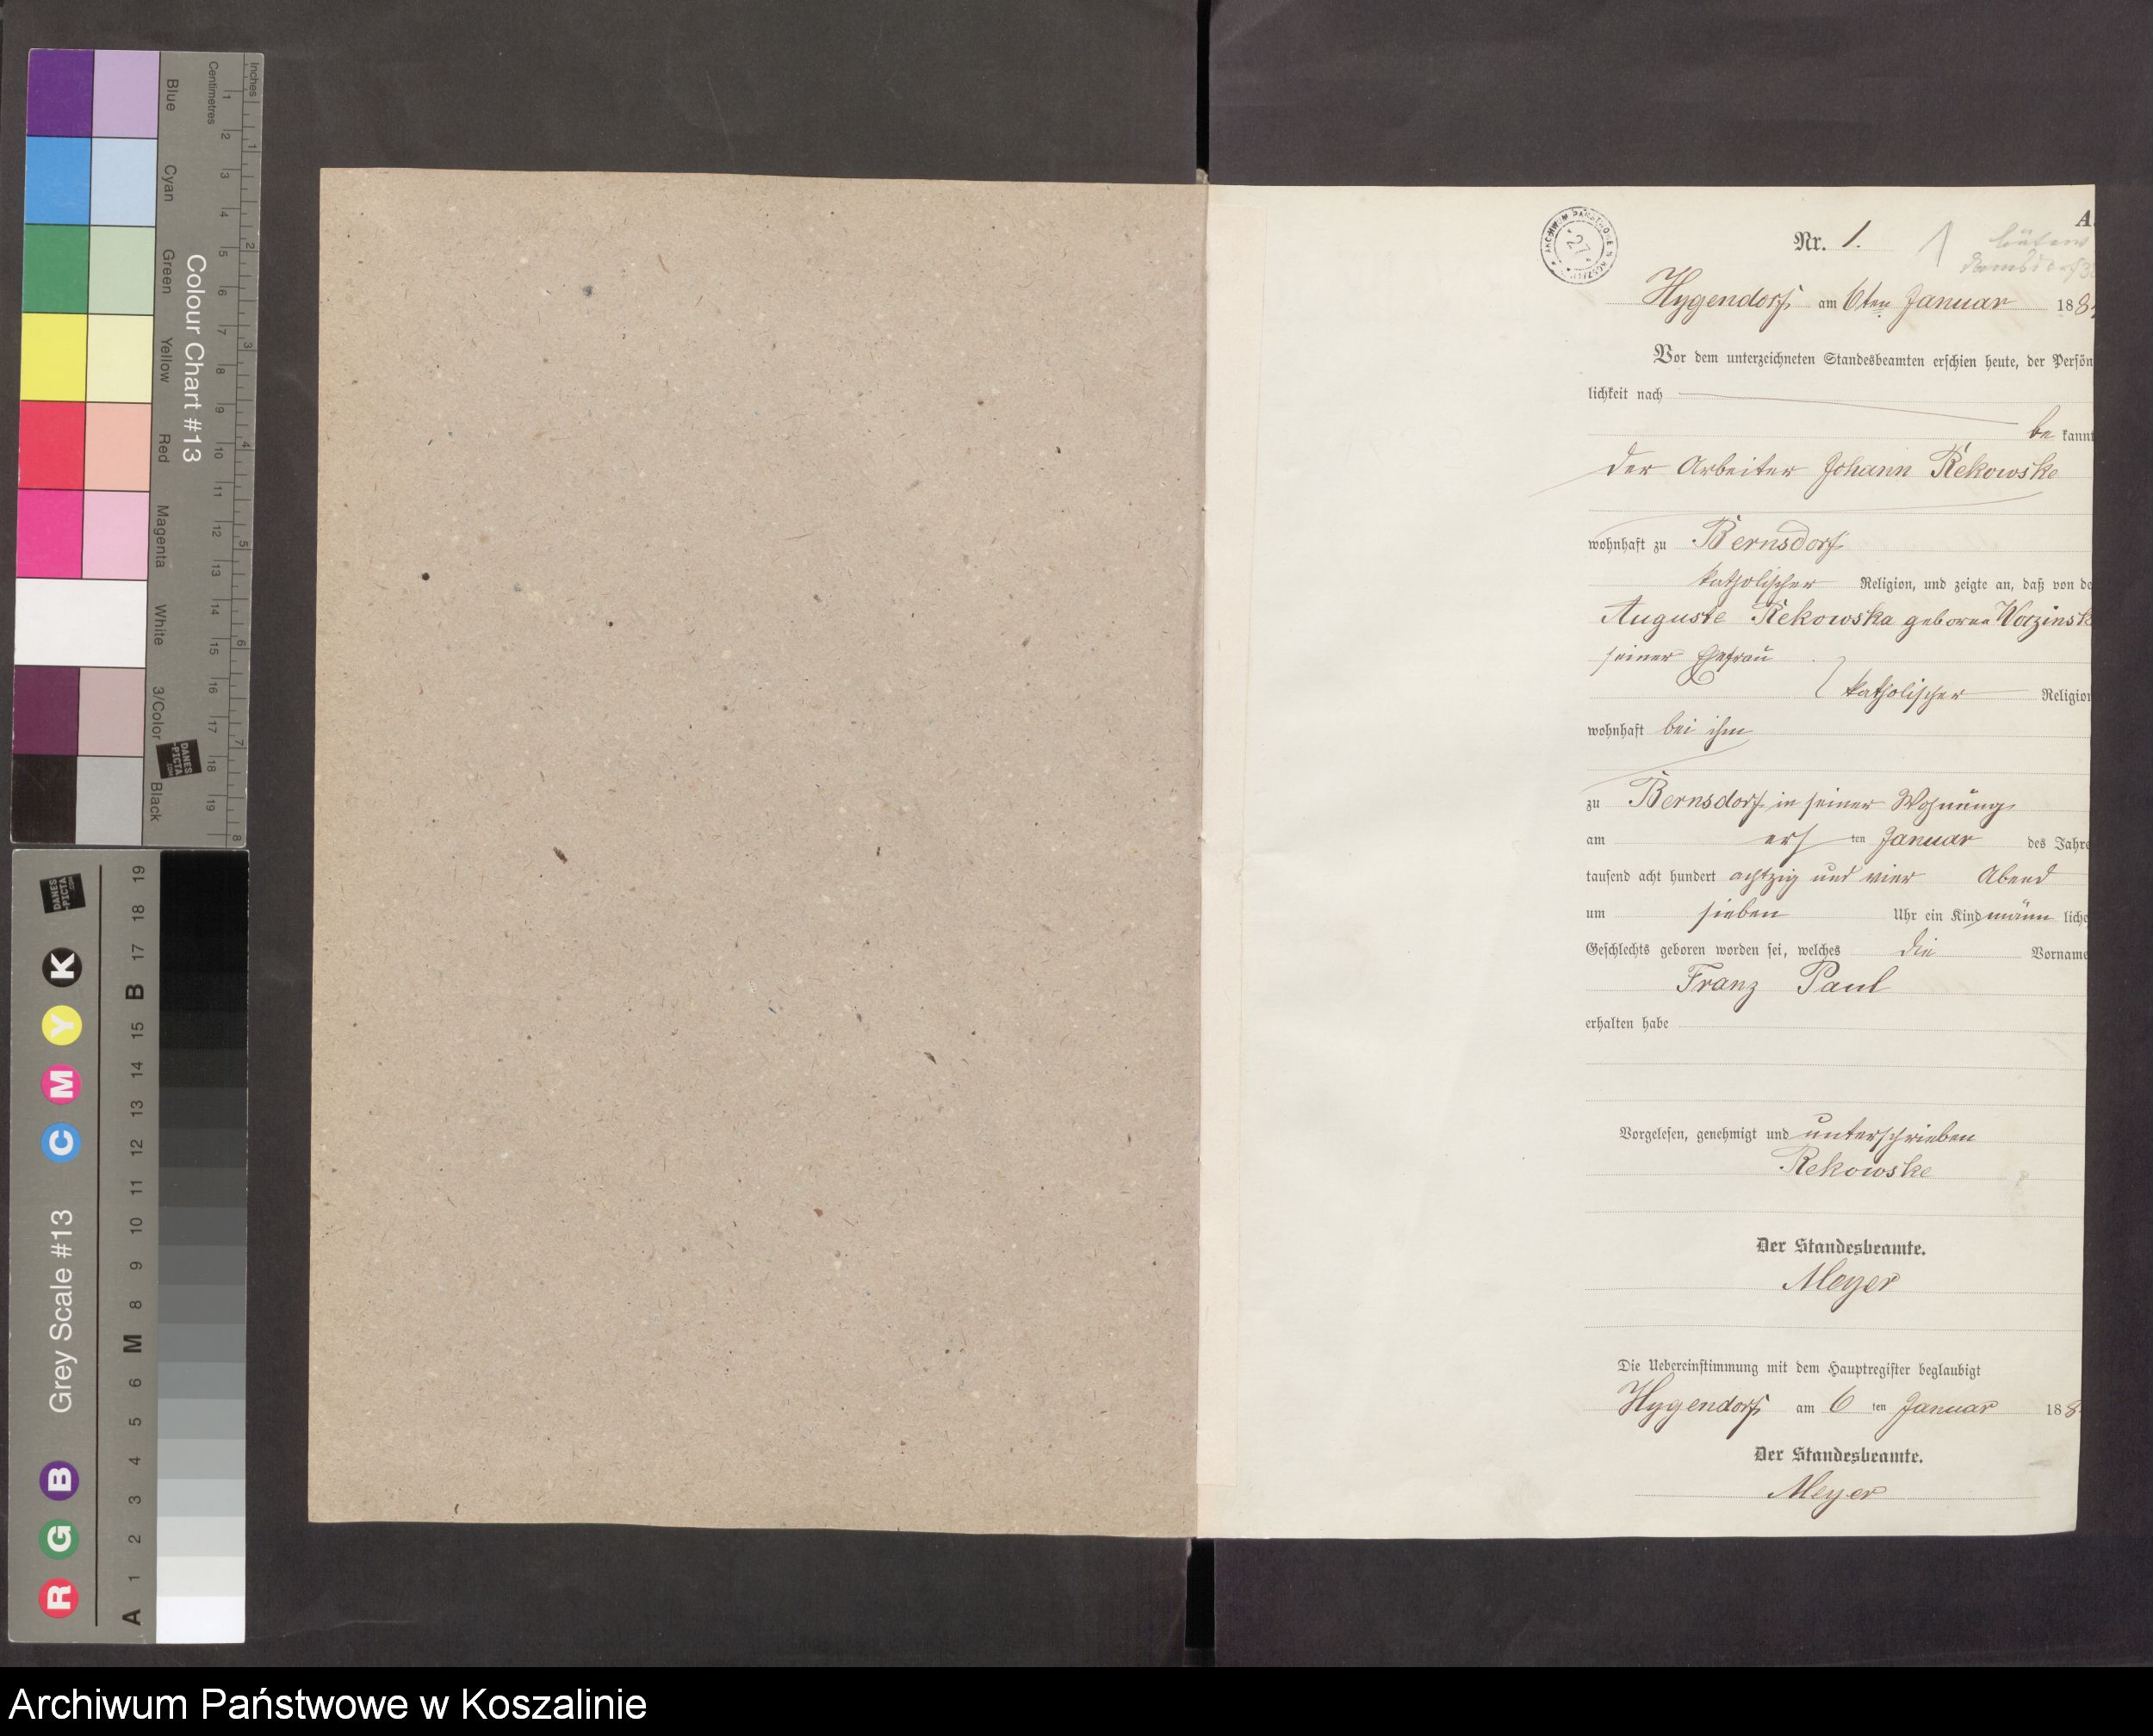 Inches
Centimetres
Colour Chart #13
Blue
Cyan
Green
Yellow
Red
Magenta
White
3/Color
Black
DANES
-PICTA
.COM
1 2 3 4 5 6 7 8 9 10 11 12 13 14 15 16 17 18 19
1 2 3 4 5 6 7 8
Grey Scale #13
R G B C M Y K
DANES
-PICTA
.COM
A 1 2 3 4 5 6 M 8 9 10 11 12 13 14 15 B 17 18 19
A.
Nr. 1.
Hygendorf am 6ten Januar 188
Vor dem unterzeichneten Standesbeamten erschien heute, der Persön
lichkeit nach
be kannt
der Arbeiter Johann Rekowske
wohnhaft zu Bernsdorf
katholischer Religion, und zeigte an, daß von de
Auguste Rekowska geborne Worzinsk
seiner Ehefrau
katholischer Religion
wohnhaft bei ihm
zu Bernsdorf in seiner Wohnung
am ers ten Januar des Jahre
tausend acht hundert achtzig und vier Abend
um sieben Uhr ein Kind männ liche
Geschlechts geboren worden sei, welches die Vorname
Franz Paul
erhalten habe
Vorgelesen, genehmigt und unterschrieben
Rekowske
Der Standesbeamte.
Meyer
Die Uebereinstimmung mit dem Hauptregister beglaubigt
Hygendorf am 6 ten Januar 188
Der Standesbeamte.
Meyer
Archiwum Państwowe w Koszalinie